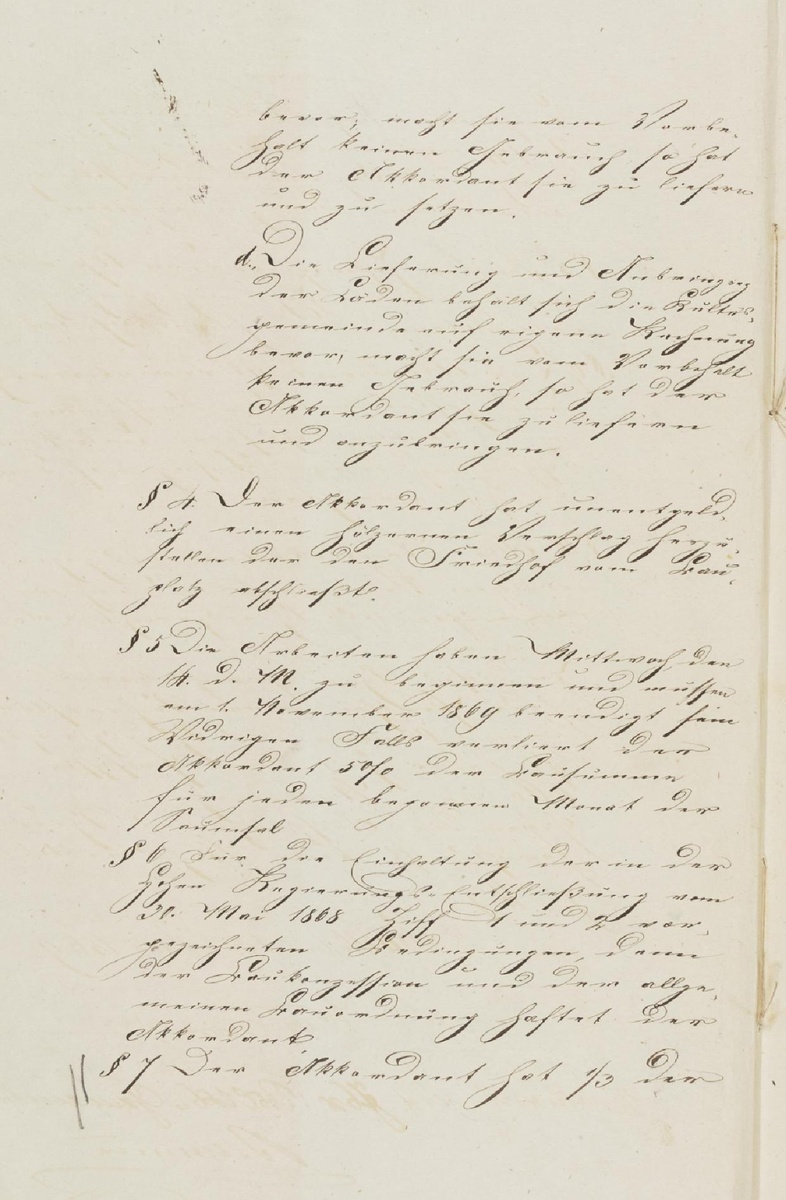 bevor; macht sie vom Vorbe-
halt keinen Gebrauch so hat
der Akkordant sie zu liefern
und zu setzen.
d., Die Lieferung und Anbringung
der Läden behält sich die Kultus-
gemeinde auf eigene Rechnung
bevor, macht sie vom Vorbehalt
keinen Gebrauch, so hat der
Akkordant sie zu liefern
und anzubringen.
§ 4. Der Akkordant hat unentgeld-
lich einen hölzernen Verschlag herzu-
stellen der den Friedhof vom Bau-
platz abschließt.
§ 5 Die Arbeiten haben Mittwoch den
14. d. M. zu beginnen und müssen
am 1. November 1869 beendigt sein
Widrigen Falls verliert der
Akkordant 5 0/0 der Bausumme
für jeden begonnen Monat der
Saumsal
§ 6 Für die Einhaltung der in der
Hohen Regierungs-Entschließung vom
30. Mai 1868 Ziff 1 und 2 vor-
gezeichneten Bedingungen, dann
der Baukonzession und der allge-
meinen Bauordnung haftet der
Akkordant
§ 7 Der Akkordant hat 1/3 der